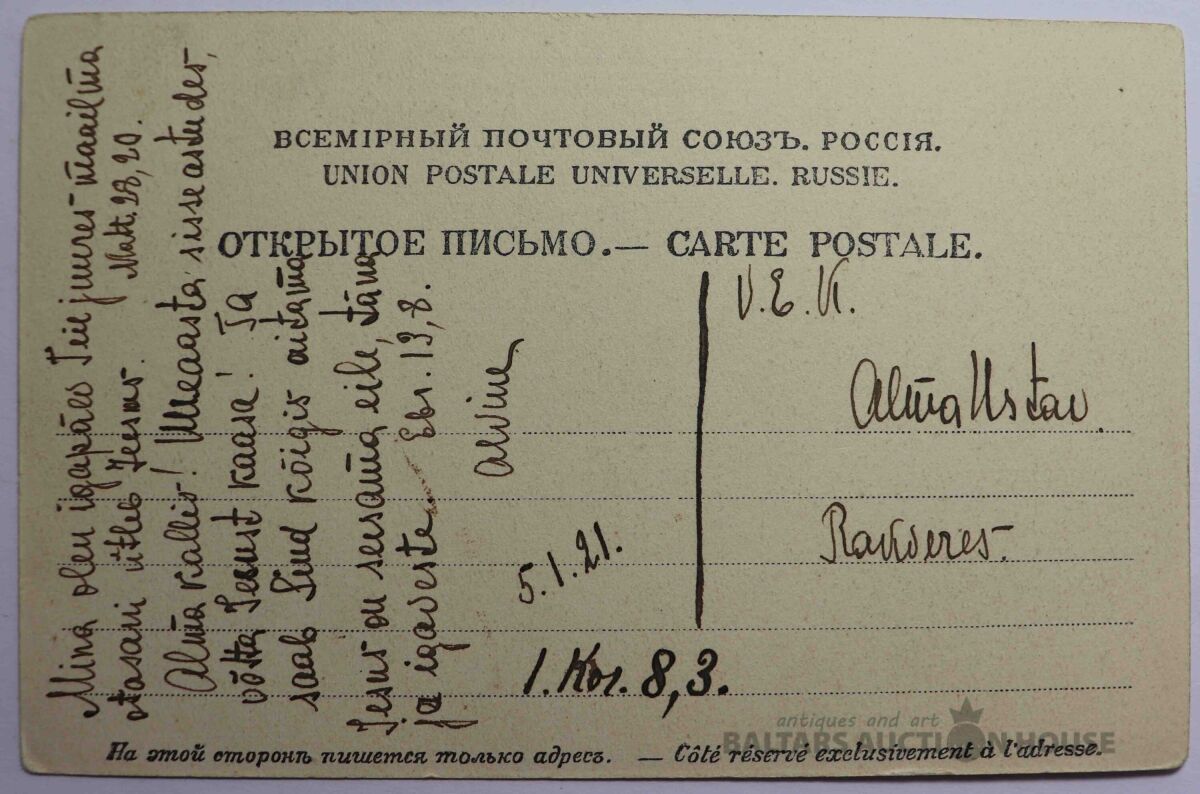 ВСЕМІРНЫЙ ПОЧТОВЫЙ СОЮЗЪ. РОССІЯ.
UNION POSTALE UNIVERSELLE. RUSSIE.
ОТКРЫТОЕ ПИСЬМО.— CARTE POSTALE.
Mina olen igapäev Teie juures maailma
otsani ütleb Jeesus. Matt. 28,20.
Alma kallis! Uueaasta sisse astudes,
võtta Jesust kaasa! Ta
saab Sind kõigis aitama
Jesus on seesama eile, täna
ja igaveste. Ebr. 13,8.
Alvine
5.1.21.
1. Kor. 8,3.
V. E. K.
Alma Ustav
Rakveres.
На этой сторонѣ пишется только адресъ. — Côté réservé exclusivement à l'adresse.
antiques and art
BALTARS AUCTION HOUSE